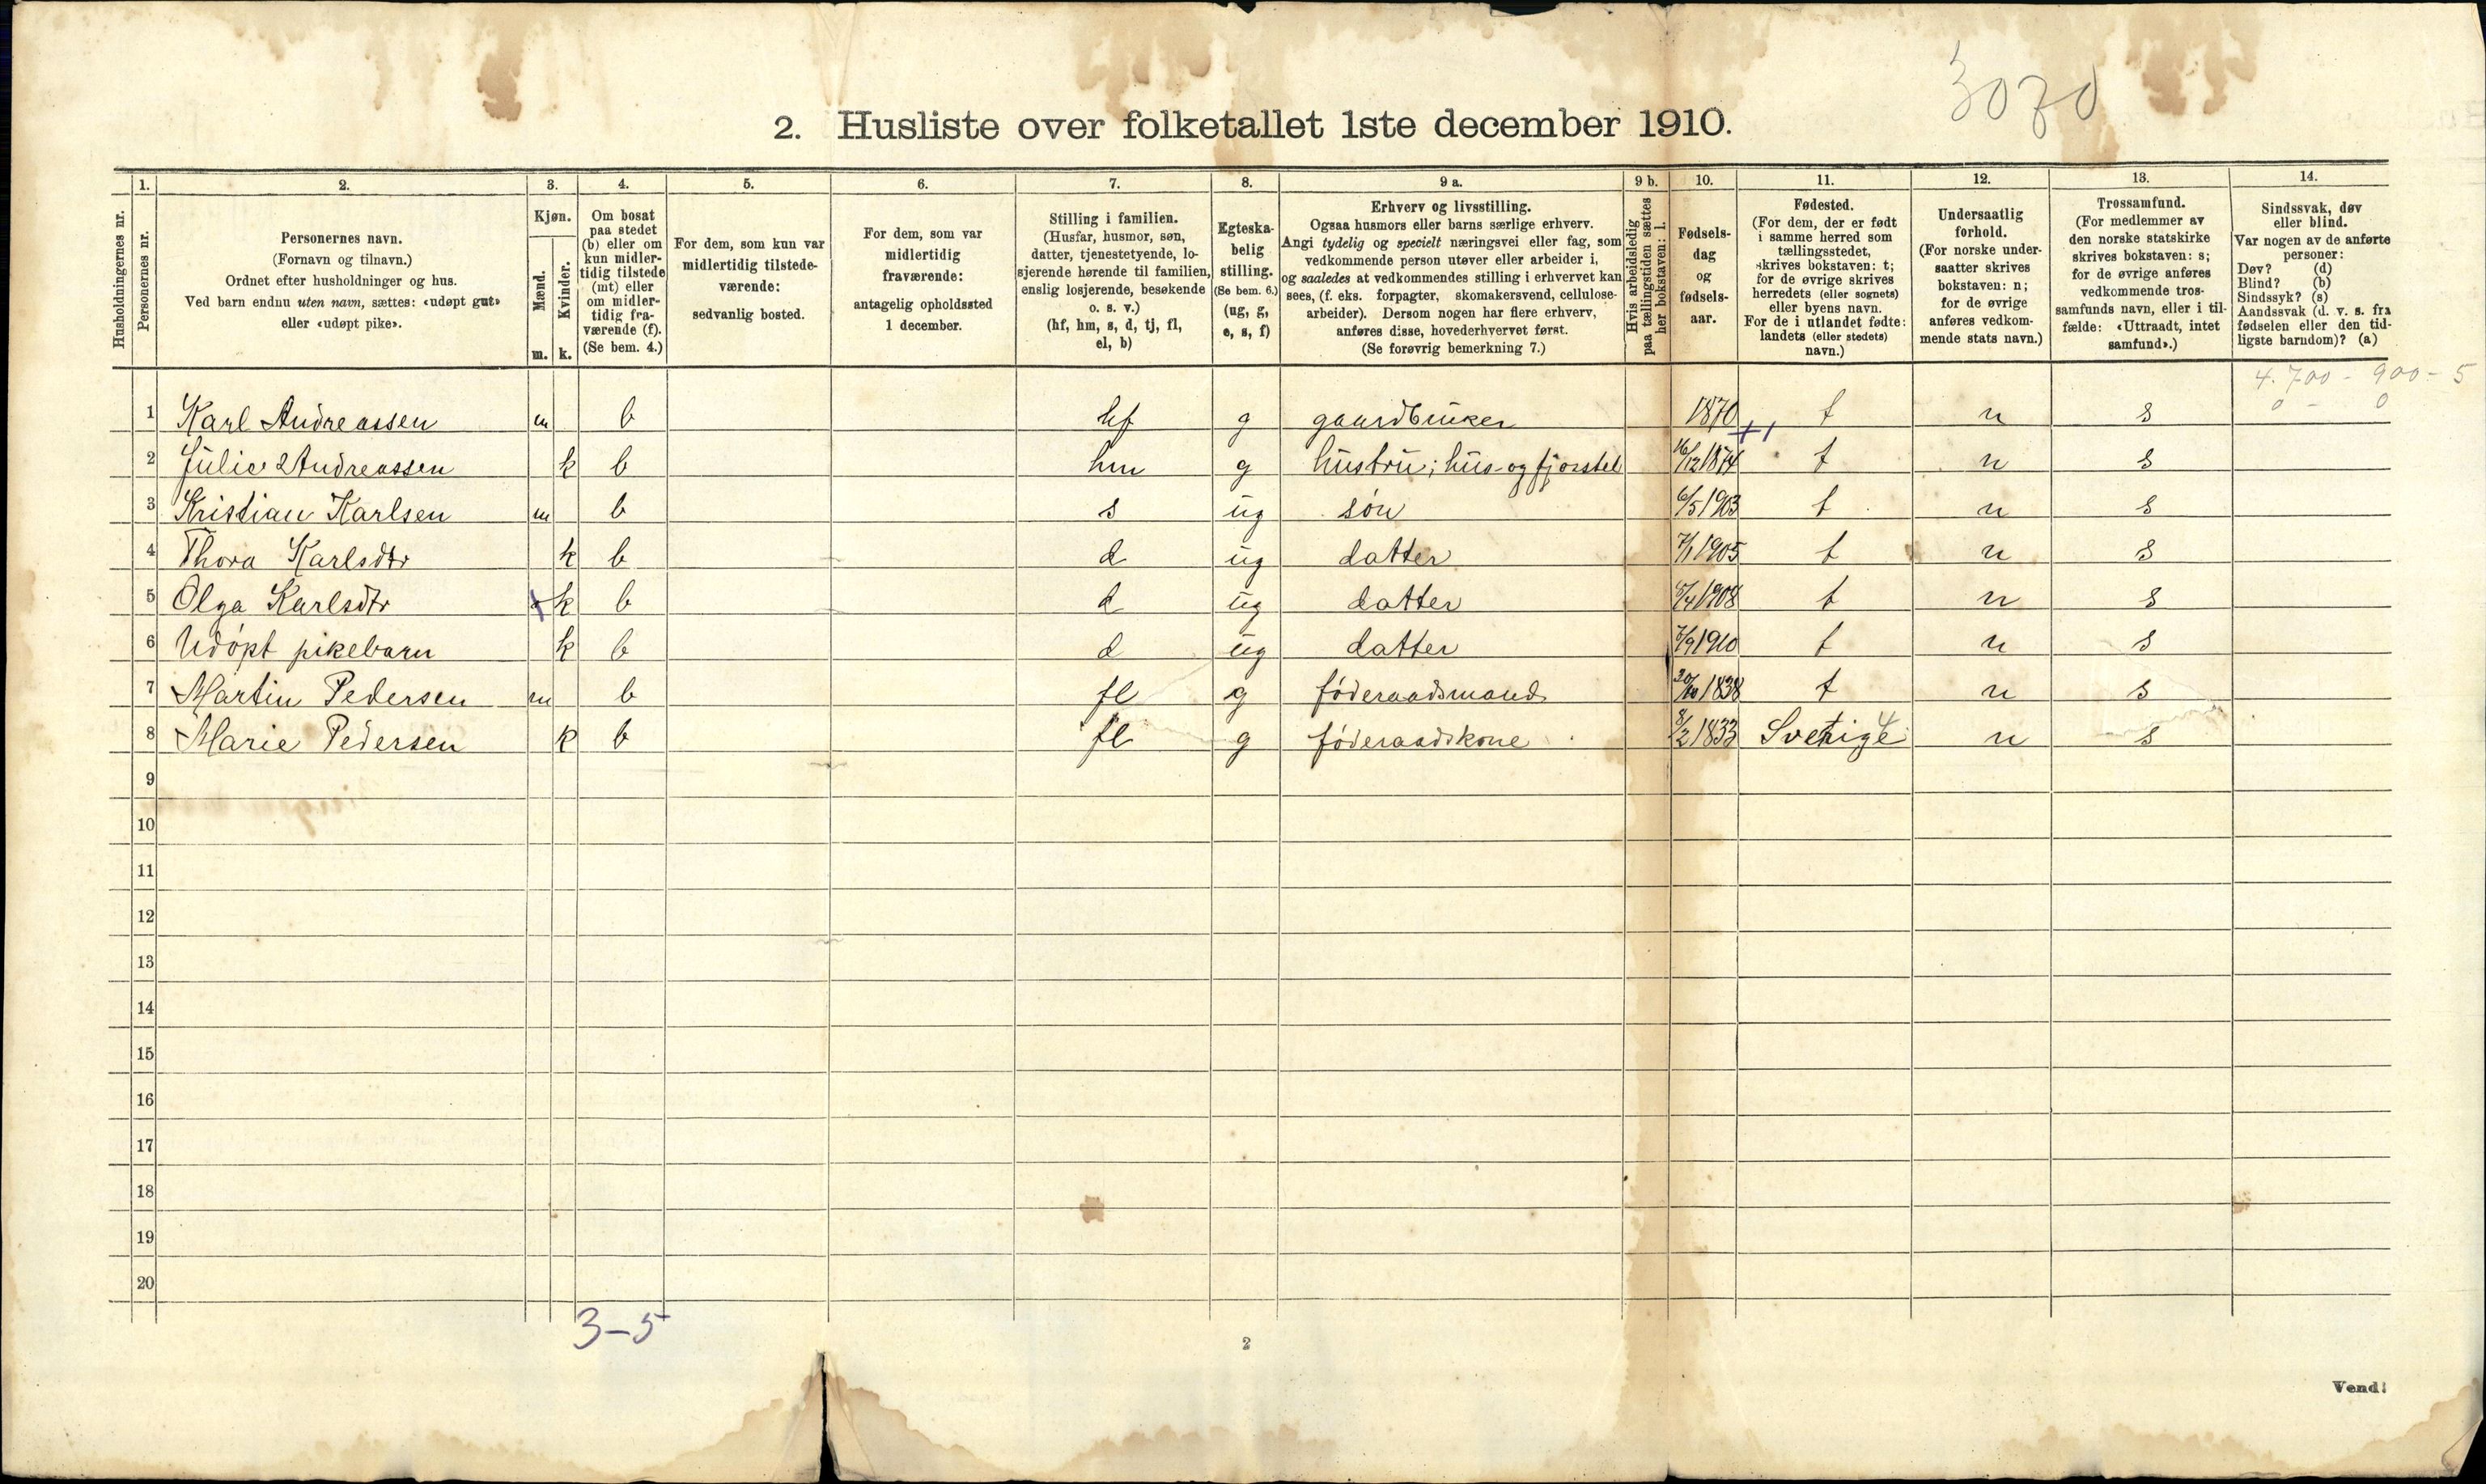 3070
2. Husliste over folketallet 1ste december 1910.
Husholdningernes nr.
1.
Personernes nr.
2.
Personernes navn.
(Fornavn og tilnavn.)
Ordnet efter husholdninger og hus.
Ved barn endnu uten navn, sættes: «udøpt gut»
eller «udøpt pike».
3.
Kjøn.
Mænd.
Kvinder.
m. k.
4.
Om bosat
paa stedet
(b) eller om
kun midler-
tidig tilstede
(mt) eller
om midler-
tidig fra-
værende (f).
(Se bem. 4.)
5.
For dem, som kun var
midlertidig tilstede-
værende:
sedvanlig bosted.
6.
For dem, som var
midlertidig
fraværende:
antagelig opholdssted
1 december.
7.
Stilling i familien.
(Husfar, husmor, søn,
datter, tjenestetyende, lo-
sjerende hørende til familien,
enslig losjerende, besøkende
o. s. v.)
(hf, hm, s, d, tj, fl,
el, b)
8.
Egteska-
belig
stilling.
(Se bem. 6.)
(ug, g,
e, s, f)
9 a.
Erhverv og livsstilling.
Ogsaa husmors eller barns særlige erhverv.
Angi tydelig og specielt næringsvei eller fag, som
vedkommende person utøver eller arbeider i,
og saaledes at vedkommendes stilling i erhvervet kan
sees, (f. eks. forpagter, skomakersvend, cellulose-
arbeider). Dersom nogen har flere erhverv,
anføres disse, hovederhvervet først.
(Se forøvrig bemerkning 7.)
9 b.
Hvis arbeidsledig
paa tællingstiden sættes
her bokstaven: l.
10.
Fødsels-
dag
og
fødsels-
aar.
11.
Fødested.
(For dem, der er født
i samme herred som
tællingsstedet,
skrives bokstaven: t;
for de øvrige skrives
herredets (eller sognets)
eller byens navn.
For de i utlandet fødte:
landets (eller stedets)
navn.)
12.
Undersaatlig
forhold.
(For norske under-
saatter skrives
bokstaven: n;
for de øvrige
anføres vedkom-
mende stats navn.)
13.
Trossamfund.
(For medlemmer av
den norske statskirke
skrives bokstaven: s;
for de øvrige anføres
vedkommende tros-
samfunds navn, eller i til-
fælde: «Uttraadt, intet
samfund».)
14.
Sindssvak, døv
eller blind.
Var nogen av de anførte
personer:
Døv? (d)
Blind? (b)
Sindssyk? (s)
Aandssvak (d. v. s. fra
fødselen eller den tid-
ligste barndom)? (a)
4.700 - 900 - 5
0 - 0
1 Karl Andreassen m b hf g gaardbruker 1870 t n s
2 Julie Andreassen k b hm g hustru; hus- og fjosstel 16/12 1874 t n s
3 Kristian Karlsen m b s ug søn 6/5 1903 t n s
4 Thora Karlsdtr k b d ug datter 7/1 1905 t n s
5 Olga Karlsdtr k b d ug datter 1908 t n s
6 Udøpt pikebarn k b d ug datter 1910 t n s
7 Martin Pedersen m b fl g føderaadsmand 20/10 1838 t n s
8 Marie Pedersen k b fl g føderaadskone 8/2 1833 Sverige 4 n s
9
10
11
12
13
14
15
16
17
18
19
20
3-5
2
Vend!